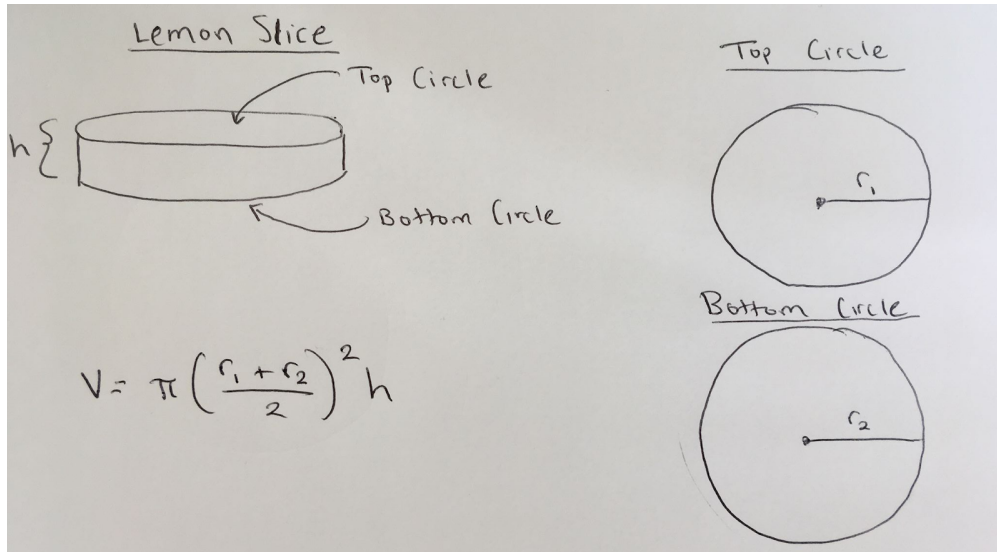 Lemon Slice
Top Circle
h
Bottom Circle
V = π((r₁ + r₂)/2)² h
Top Circle
r₁
Bottom Circle
r₂